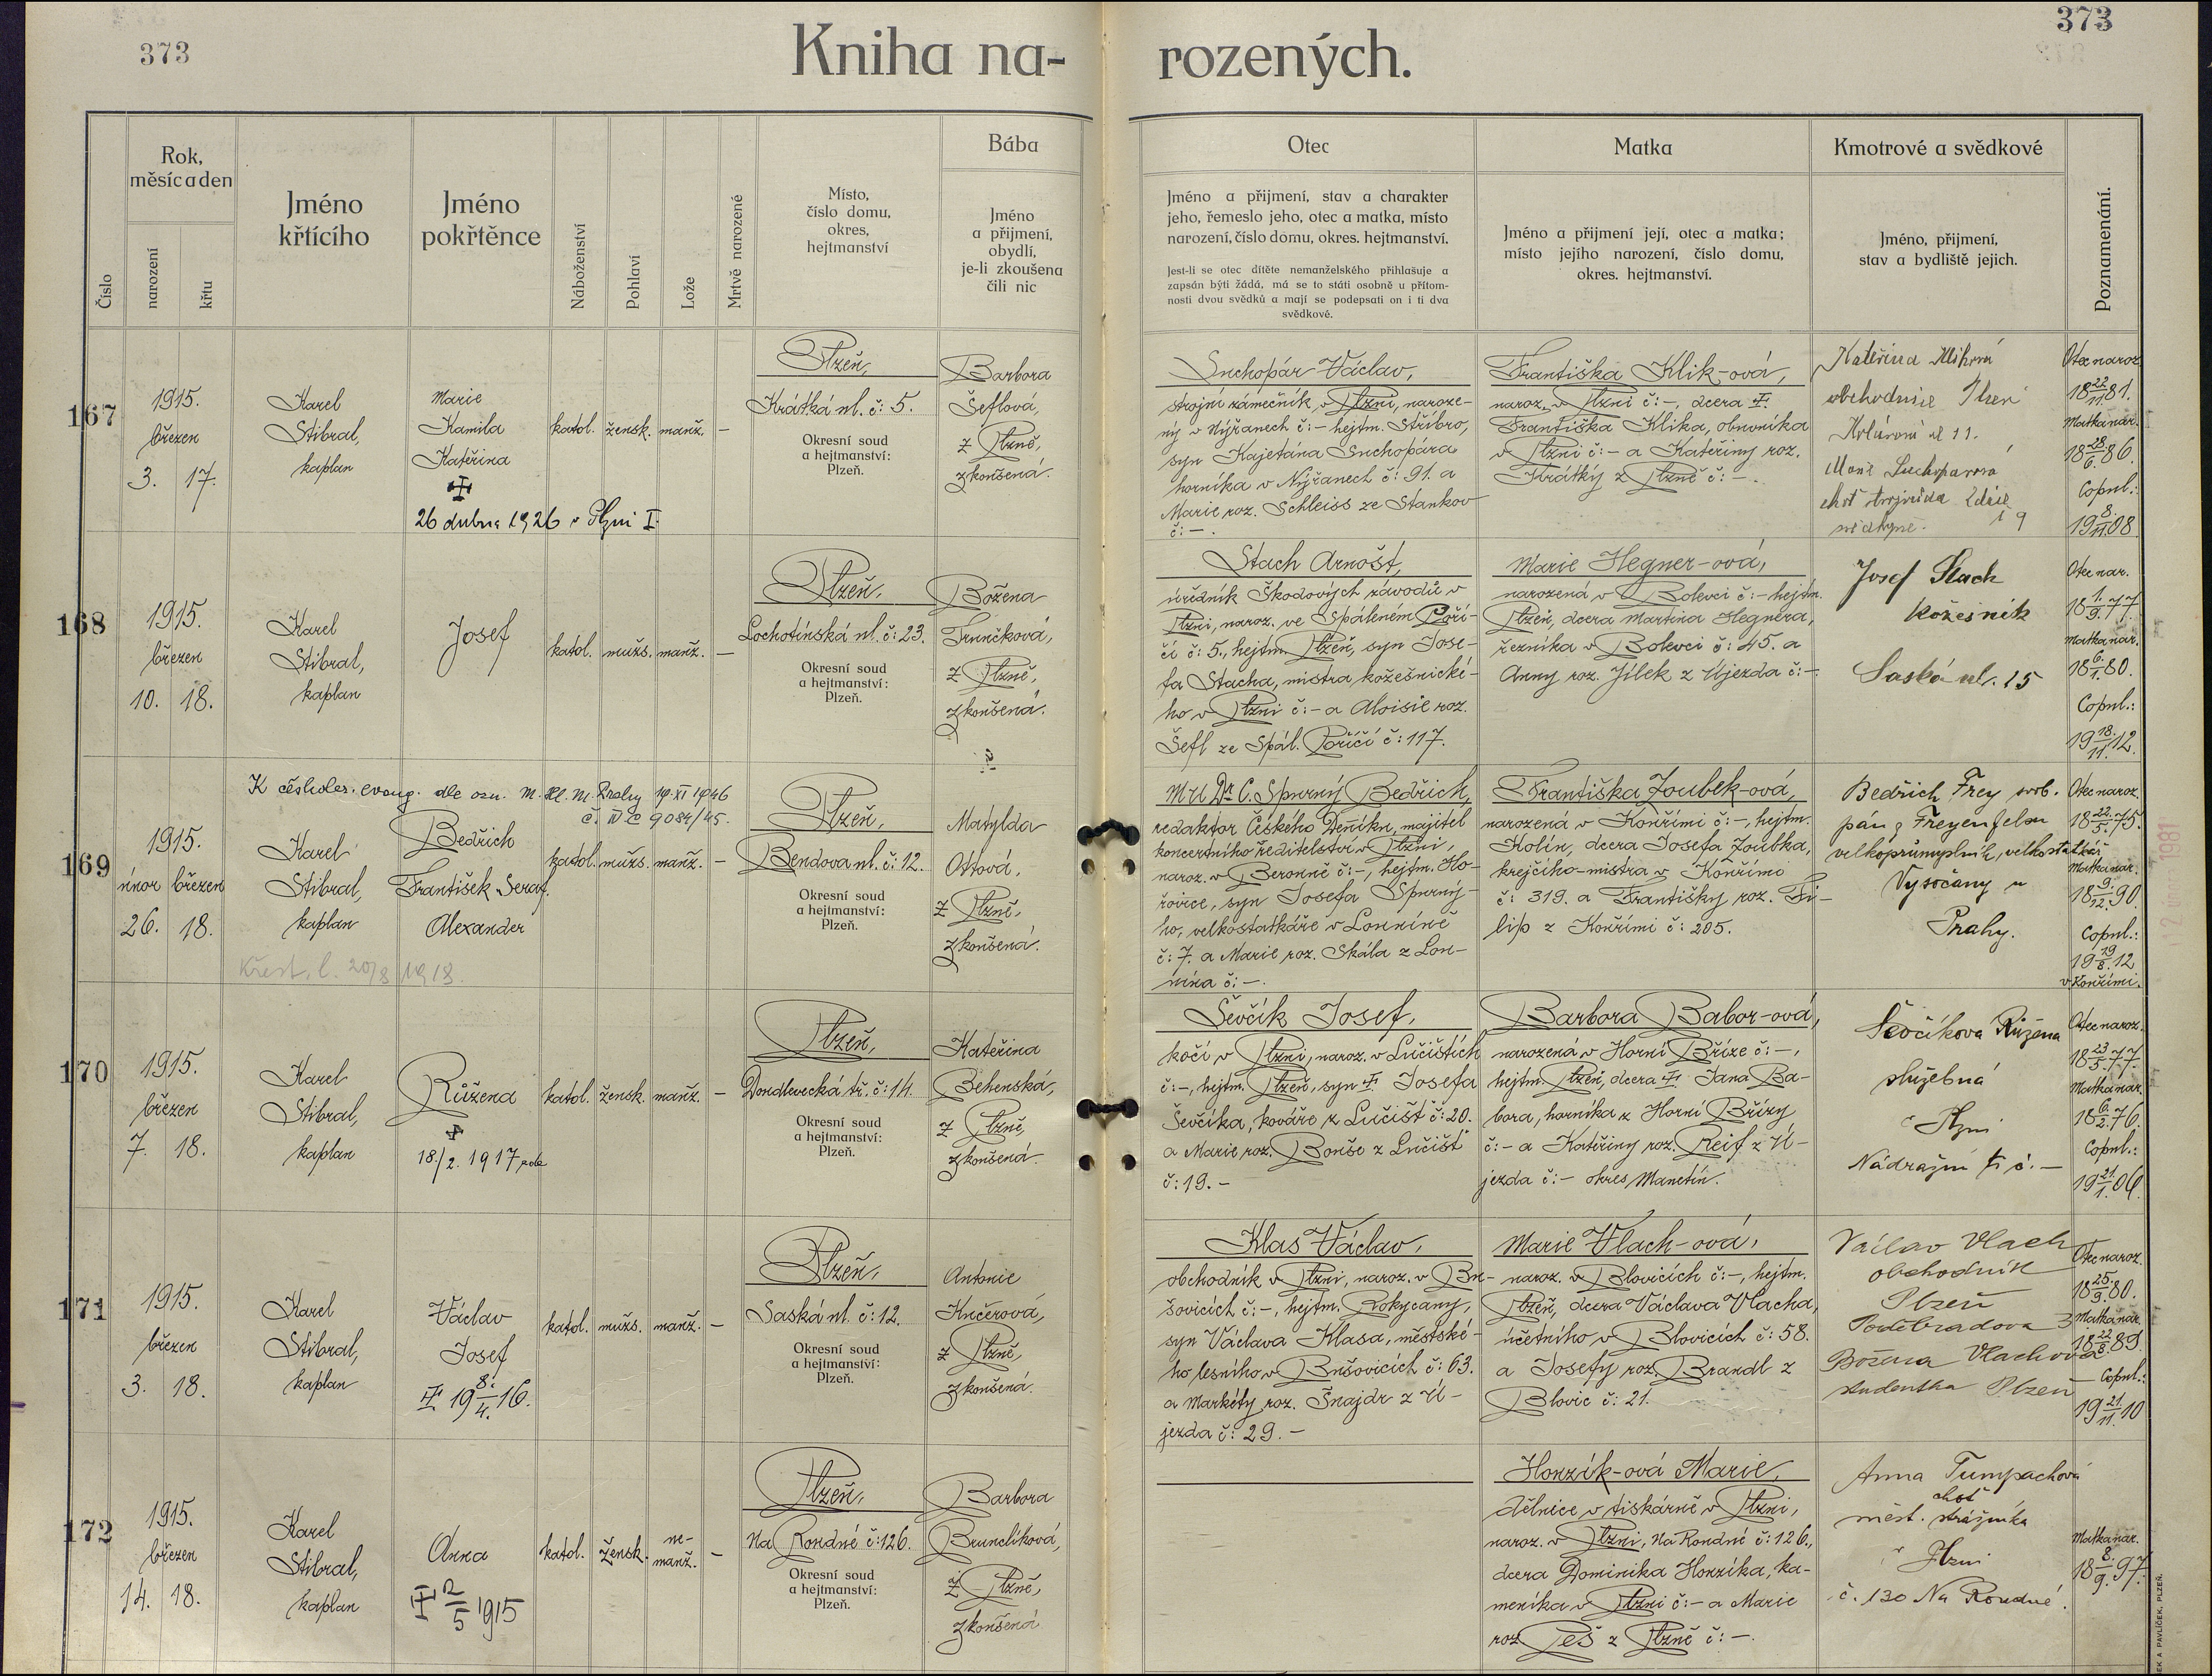 373
373
Kniha na- rozených.
Číslo
Rok, měsíc a den
narození
křtu
Jméno křtícího
Jméno pokřtěnce
Náboženství
Pohlaví
Lože
Mrtvě narozené
Místo, číslo domu, okres, hejtmanství
Bába
Jméno a přijmení, obydlí, je-li zkoušena čili nic
Otec
Jméno a přijmení, stav a charakter
jeho, řemeslo jeho, otec a matka, místo
narození, číslo domu, okres. hejtmanství.
Jest-li se otec dítěte nemanželského přihlašuje a
zapsán býti žádá, má se to státi osobně u přítom-
nosti dvou svědků a mají se podepsati on i ti dva
svědkové.
Matka
Jméno a přijmení její, otec a matka;
místo jejího narození, číslo domu,
okres. hejtmanství.
Kmotrové a svědkové
Jméno, přijmení,
stav a bydliště jejich.
Poznamenání.
167
1915.
březen
3. 17.
Karel
Stibral,
kaplan
Marie
Kamila
Kateřina
26 dubna 1926 v Plzni I.
katol. žensk. manž. –
Plzeň,
Krátká ul. č: 5.
Okresní soud
a hejtmanství:
Plzeň.
Barbora
Šeflová,
z Plzně,
zkoušená.
Suchopár Václav,
strojní zámečník v Plzni, naroze-
ný v Nýřanech č:– hejtm. Stříbro,
syn Kajetána Suchopára
horníka v Nýřanech č: 91. a
Marie roz. Schleiss ze Stankov
č: –.
Františka Klik-ová,
naroz. v Plzni č:–, dcera
Františka Klika, obuvníka
v Plzni č:– a Kateřiny roz.
Krátký z Plzně č: –.
Kateřina Kliková
obchodnice Plzeň
Kolárova ul 11.
Marie Suchoparová
Otec naroz.
18 22/11 81.
Matka nar.
18 28/6 86.
Copul.:
19 8/11 08
168
1915.
březen
10. 18.
Karel
Stibral,
kaplan
Josef
katol. mužs. manž. –
Plzeň,
Lochotínská ul. č: 23.
Okresní soud
a hejtmanství:
Plzeň.
Božena
Trunčková,
z Plzně,
zkoušená.
Stach Arnošt,
úředník Škodových závodů v
Plzni, naroz. ve Spáleném Poří-
čí č: 5., hejtm. Plzeň, syn Jose-
fa Stacha, mistra kožešnické-
ho v Plzni č:– a Aloisie roz.
Šefl ze Spál. Poříčí č: 117.
Marie Hegner-ová,
narozená v Bolevci č:– hejtm.
Plzeň, dcera Martina Hegnera,
řezníka v Bolevci č: 45. a
Anny roz. Jílek z Újezda č: –.
Josef Stach
kožešník
Saská ul. 15
Otec nar.
18 1/9 77
Matka nar.
18 6/1 80.
Copul.:
19 18/11 12.
K českobr. evang. dle ozn. M. Hl. M. Prahy 19 XI 1946
č. IV C 9084/45.
169
1915.
únor březen
26. 18.
Karel
Stibral,
kaplan
Bedřich
František Seraf.
Alexander
Křest. l. 20/8 1918.
katol. mužs. manž. –
Plzeň,
Bendova ul. č: 12.
Okresní soud
a hejtmanství:
Plzeň.
Matylda
Ottová,
z Plzně,
zkoušená.
MU Dr C. Spurný Bedřich,
redaktor Českého Deníku, majitel
koncertního ředitelství v Plzni,
naroz. v Berouně č:–, hejtm. Ho-
řovice, syn Josefa Spurný-
ho, velkostatkáře v Louníně
č: 7. a Marie roz. Skála z Lou-
nína č: –.
Františka Zoubek-ová,
narozená v Kouřimi č:–, hejtm.
Kolín, dcera Josefa Zoubka,
krejčího-mistra v Kouřimi
č: 319. a Františky roz. Fi-
lip z Kouřimi č: 205.
Bedřich Frey svob.
pán z Freyenfelsu
velkoprůmyslník, velkostatkář
Vysočany u
Prahy.
Otec naroz.
18 22/5 75.
Matka nar.
18 9/12 90.
Copul.:
19 19/8 12
v Kouřimi.
1981
170
1915.
březen
7. 18.
Karel
Stibral,
kaplan
Růžena
18./2. 1917
katol. žensk. manž. –
Plzeň,
Doudlevecká tř. č: 14.
Okresní soud
a hejtmanství:
Plzeň.
Kateřina
Behenská,
z Plzně,
zkoušená.
Ševčík Josef,
kočí v Plzni, naroz. v Lučištích
č:–, hejtm. Plzeň, syn Josefa
Ševčíka, kováře z Lučišť č: 20.
a Marie roz. Bouše z Lučišť
č: 19. –
Barbora Babor-ová,
narozená v Horní Bříze č:–,
hejtm. Plzeň, dcera Jana Ba-
bora, horníka z Horní Břízy
č:– a Kateřiny roz. Reif z Ú-
jezda č:– okres Manetín.
Ševčíkova Růžena
služebná
v Plzni
Nádražní tř č. –
Otec naroz.
18 23/5 77.
Matka nar.
18 6/2 76.
Copul.:
19 21/1 06.
171
1915.
březen
3. 18.
Karel
Stibral,
kaplan
Václav
Josef
19 8./4. 16.
katol. mužs. manž. –
Plzeň,
Saská ul. č: 12.
Okresní soud
a hejtmanství:
Plzeň.
Antonie
Kučerová,
z Plzně,
zkoušená.
Klas Václav,
obchodník v Plzni, naroz. v Bu-
šovicích č:–, hejtm. Rokycany,
syn Václava Klasa, městské-
ho lesního v Bušovicích č: 63.
a Markéty roz. Šnajdr z Ú-
jezda č: 29. –
Marie Vlach-ová,
naroz. v Blovicích č:–, hejtm.
Plzeň, dcera Václava Vlacha,
účetního v Blovicích č: 58.
a Josefy roz. Brandl z
Blovic č: 21.
Václav Vlach
obchodník
Plzeň
Poděbradova 3
Božena Vlachova
studentka Plzeň
Otec naroz.
18 25/9 80.
Matka nar.
18 22/8 89.
Copul.:
19 21/11 10
172
1915.
březen
14. 18.
Karel
Stibral,
kaplan
Anna
2/5 1915
katol. žensk. ne-manž. –
Plzeň,
Na Roudné č: 126.
Okresní soud
a hejtmanství:
Plzeň.
Barbora
Brunclíková,
z Plzně,
zkoušená
Honzík-ová Marie,
dělnice v tiskárně v Plzni,
naroz. v Plzni, Na Roudné č: 126.,
dcera Dominika Honzíka, ka-
meníka v Plzni č:– a Marie
roz. Peš z Plzně č: –.
Anna Tumpachová
choť
měst. strážníka
v Plzni
č. 130 Na Roudné.
Matka nar.
18 8/9 97.
EK A PAVLÍČEK, PLZEŇ.